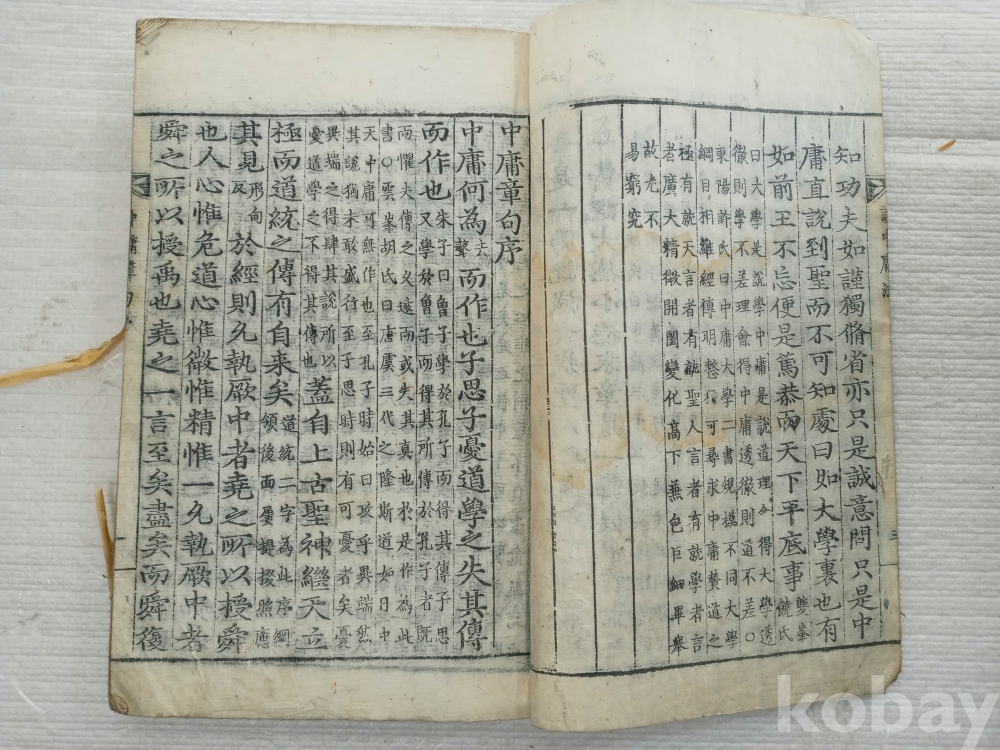 知功夫如謹獨脩省亦只是誠意問只是中
庸直說到聖而不可知處曰如大學裏也有
如前王不忘便是篤恭而天下平底事雙峯饒氏
曰大學是說學中庸是說道理會得大學透
徹則學不差理會得中庸透徹則道不差○
東陽許氏曰中庸大學二書規模不同大學
綱目相維經傳明整猶可尋求中庸贊道之
極有就天言者有就聖人言者有就學者言
者廣大精微開闔變化高下兼色巨細畢擧
故尤不
易窮究
中庸章句序
中庸何為去聲而作也子思子憂道學之失其傳
而作也朱子曰曾子學於孔子而得其傳子思
又學於曾子而得其所傳於孔子者旣
而懼夫傳之久遠而或失其真也於是作為此
書○雲峯胡氏曰唐虞三代之隆斯道如日中
天中庸可無作也至孔子時始曰攻乎異端然
其說猶未敢盛行至子思時則有可憂者矣憂
異端之得肆其說所以
憂道學之不得其傳也蓋自上古聖神繼天立
極而道統之傳有自来矣道統二字為此序綱
領後面屢提掇照應
其見形甸反於經則允執厥中者堯之所以授舜
也人心惟危道心惟微惟精惟一允執厥中者
舜之所以授禹也堯之一言至矣盡矣而舜復
kobay